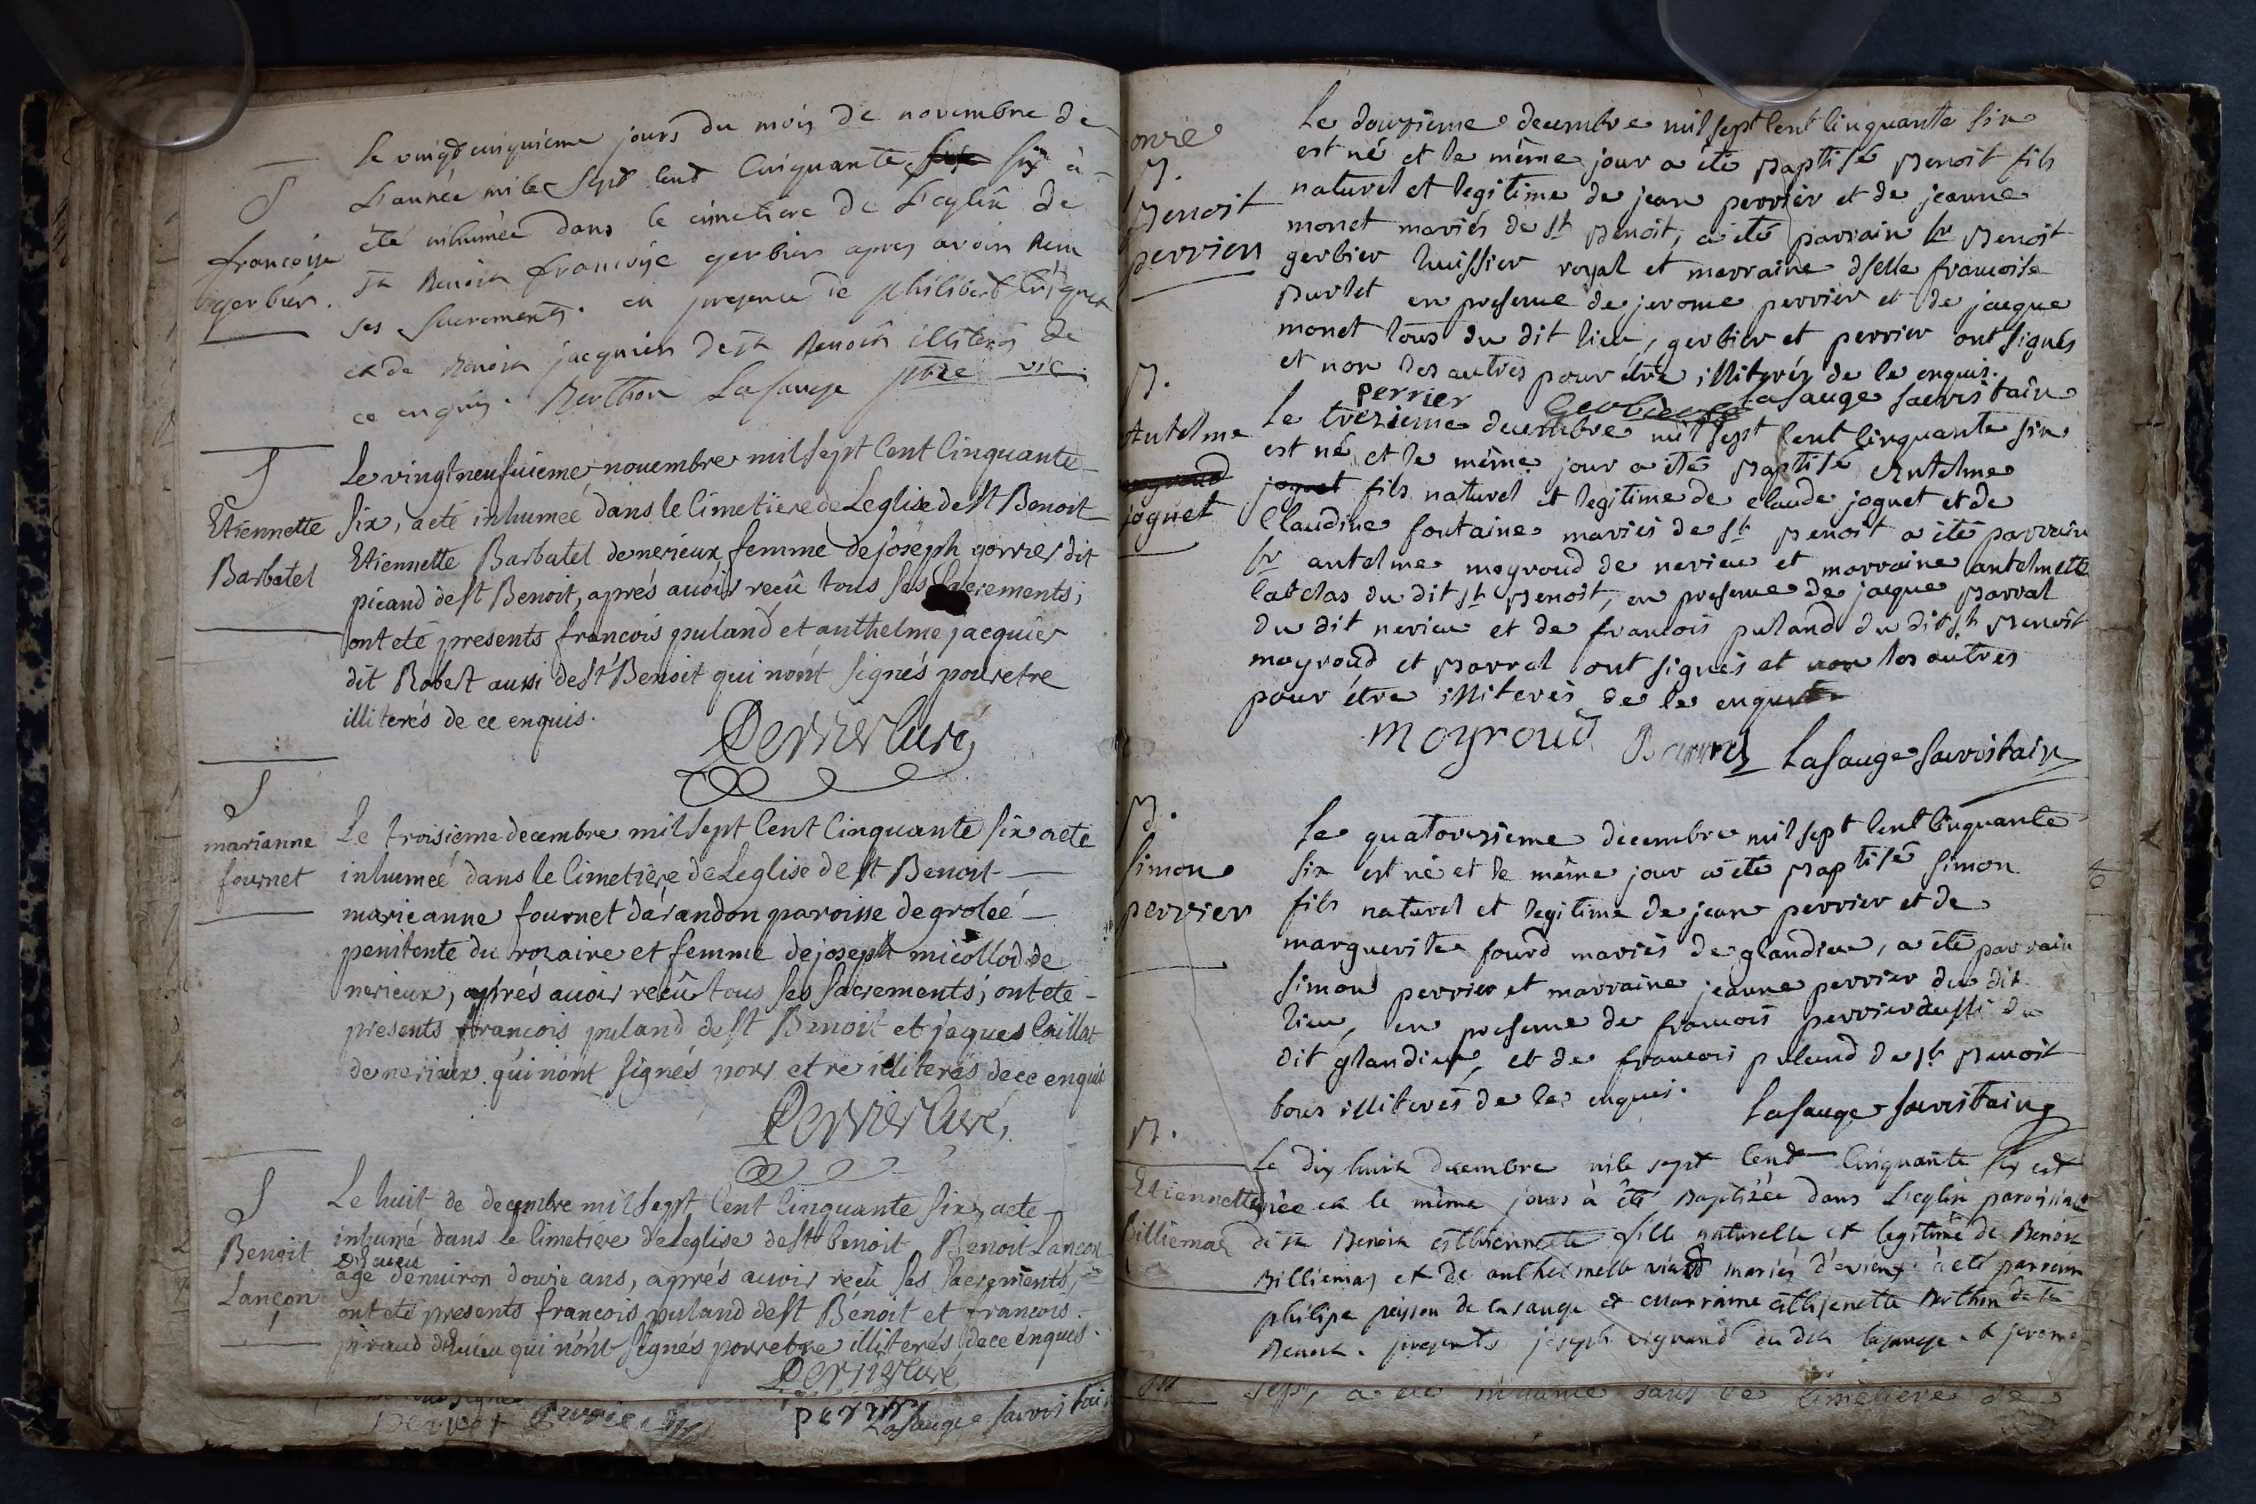 S
francoise
gerbier.
le vingt cinquieme jours du mois de novembre de
L'année mile sept cent Cinquante six à
été inhumée dans le cimetiere de L'eglise de
st Benoit francoise gerbier apres avoir recu
ses sacrements. en presence de philibert
et de Benoit jacquier de st Benoit illiterés de
ce enquis. Berthon Lasauge ptre vic.
S
Etiennette
Barbatel
Le vingt neufuieme novembre mil sept Cent Cinquante
six, a eté inhumeé dans le Cimetiere de Leglise de st Benoit
Etiennette Barbatel de nerieux femme de joseph gorrier dit
picand de st Benoit, aprés auoir recû tous ses sacrements;
ont eté presents francois puland et anthelme jacquier
dit Robert aussi de st Benoit qui n'ont signés pour etre
illiterés de ce enquis.
Perrier Curé
S
marianne
fournet
Le troisieme decembre mil sept Cent Cinquante six a eté
inhumeé dans le Cimetiere de Leglise de st Benoit
marieanne fournet d'arandon paroisse de groleé
penitente du rozaire et femme de joseph micollod de
nerieux, aprés auoir recû tous ses sacrements; ont eté
presents francois puland de st Benoit et jaques Caillat
de nerieux qui n'ont signés pour etre illiterés de ce enquis
Perrier Curé,
S
Benoit
Lançon
Le huit de decembre mil sept Cent Cinquante six, a eté
inhumé dans le Cimetiere de Leglise de st benoit Benoit Lançon
agé d'enuiron douze ans, aprés auoir recû ses sacrements,
ont eté presents francois puland de st Bénoit et francois
piraud qui n'ont signés pour etre illiterés de ce enquis.
Perrier Curé
Lasauge sacristain
B.
Benoit
perrier
Le douzieme decembre mil sept cent cinquante six
est né et le même jour a été Baptisé Benoit fils
naturel et legitime de jean perrier et de jeanne
monet mariés de st Benoit, a été parrain sr Benoit
gerbier huissier royal et marraine dselle francoise
Burlet en presence de jerome perrier et de jacque
monet tous du dit lieu, gerbier et perrier ont signés
et non les autres pour être illiterés de ce enquis.
perrier Gerbier Lasauge sacristain
B.
Antelme
joguet
Le trezieme decembre mil sept cent cinquante six
est né et le même jour a été Baptisé Antelme
joguet fils naturel et legitime de claude joguet et de
Claudine fontaine mariés de st Benoit a été parrain
sr antelme moyroud de nerieu et marraine antelmette
du dit st Benoit, en presence de jacque Barral
du dit nerieu et de francois puland du dit st Benoit
moyroud et Barral ont signés et non les autres
pour être illiterés de ce enquis
moyroud Barral Lasauge sacristain
B.
simon
perrier
Le quatorzieme decembre mil sept cent cinquante
six est né et le même jour a été Baptisé simon
fils naturel et legitime de jean perrier et de
marguerite fourd mariés de glandieu, a été parrain
simon perrier et marraine jeanne perrier du dit
lieu, en presence de francois perrier aussi du
dit glandieu, et de francois puland de st Benoit
tous illiterés de ce enquis. Lasauge sacristain
B.
Etiennette
billiemaz
Le dix huit decembre mile sept cent Cinquante six est
née et le même jours à été Baptisée dans L'eglise paroissiale
de st Benoit etthiennette fille naturelle et legitime de Benoit
Billiemaz et de anthelmette mariés d'évieux à eté parrein
philipe peysson de lasauge et marraine etthienette Berthon de st
Benoit. presents joseph du dit lasauge et jerome